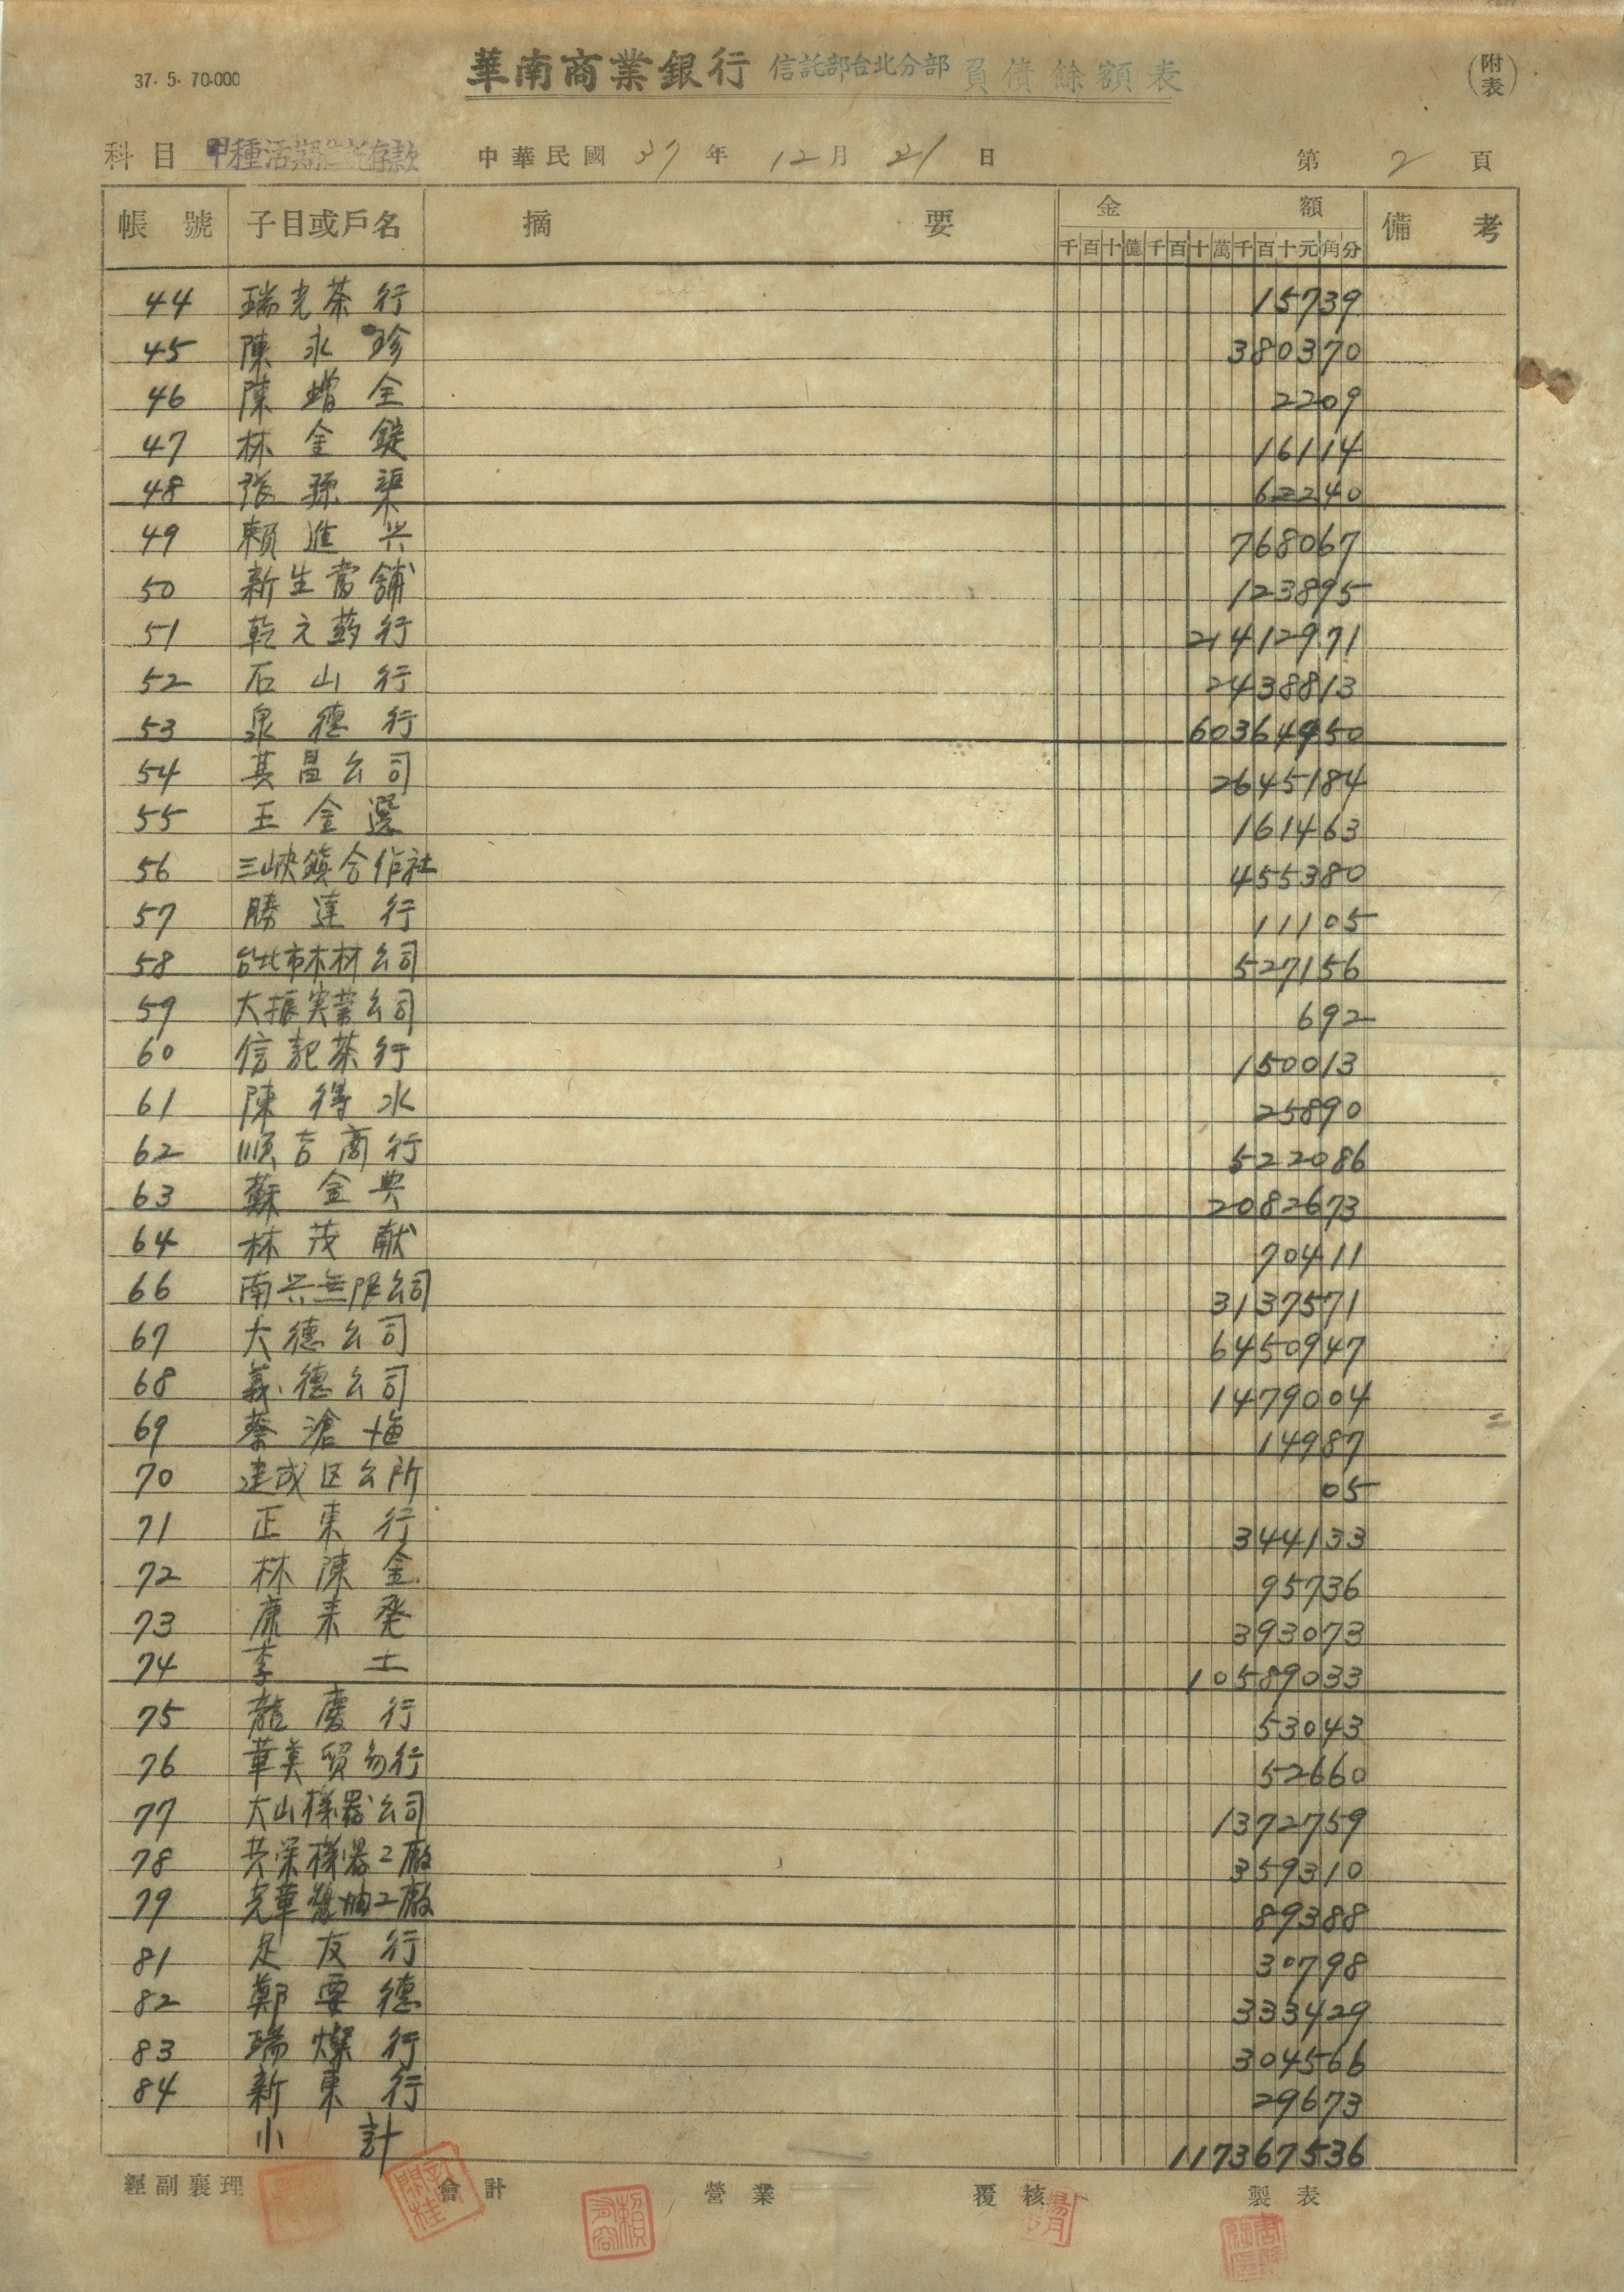 37. 5. 70.000
華南商業銀行 信託部台北分部 負債餘額表 (附表)
科目 甲種活期信託存款 中華民國 37 年 12 月 21 日 第 2 頁
帳號 子目或戶名 摘要 金額 備考
千百十億千百十萬千百十元角分
44 瑞光茶行 15739
45 陳永珍 380370
46 陳増全 2209
47 林金錠 16114
48 張孫渠 62240
49 賴進兴 768067
50 新生當舖 123895
51 乾元葯行 21412971
52 石山行 2438813
53 泉德行 60364950
54 其昌公司 2645184
55 王金選 161463
56 三峽鎮合作社 455380
57 勝達行 11105
58 台北市木材公司 527156
59 大振実業公司 692
60 信記茶行 150013
61 陳得水 25890
62 順吉商行 522086
63 蘇金典 2082673
64 林茂献 70411
66 南兴無限公司 3137571
67 大德公司 6450947
68 義德公司 1479004
69 蔡滄海 14987
70 建成区公所 05
71 正東行 344133
72 林陳金 95736
73 康来発 393073
74 李土 10589033
75 龍慶行 53043
76 華美貿易行 52660
77 大山機器公司 1372759
78 共栄機器工廠 359310
79 光華醬油工廠 89388
81 足友行 30798
82 鄭要德 333429
83 瑞燦行 304566
84 新東行 29673
小計 117367536
經副襄理 會計 營業 覆核 製表